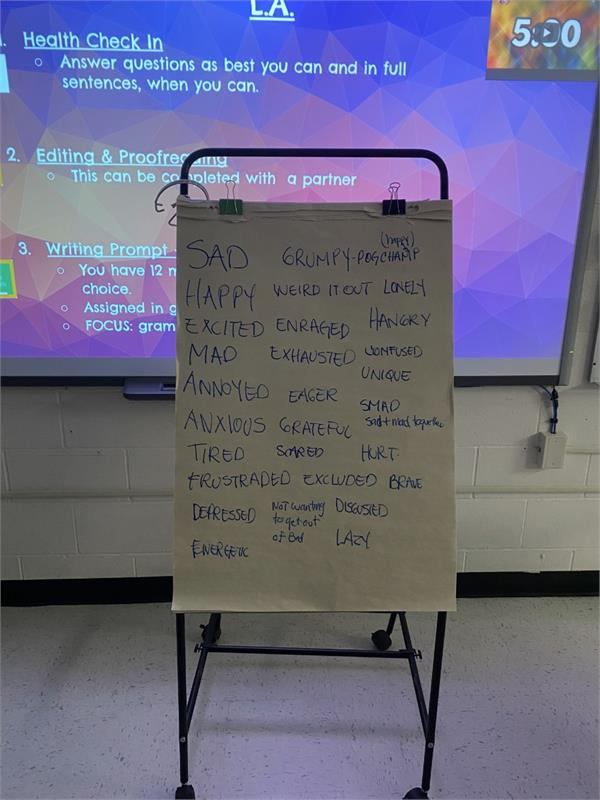 L.A.
5:00
Health Check In
○ Answer questions as best you can and in full
sentences, when you can.
2. Editing & Proofreading
○ This can be completed with a partner
3. Writing Prompt -
○ You have 12 m
choice.
○ Assigned in g
○ FOCUS: gram
SAD GRUMPY-POGCHAMP (happy)
HAPPY WEIRD IT OUT LONELY
EXCITED ENRAGED HANGRY
MAD EXHAUSTED CONFUSED
UNIQUE
ANNOYED EAGER
SMAD
Sad + mad together
ANXIOUS GRATEFUL
TIRED SCARED HURT
FRUSTRADED EXCLUDED BRAVE
DEPRESSED Not wanting DISGUSTED
to get out
of Bed LAZY
ENERGETIC